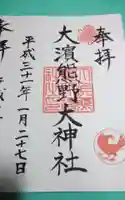 奉拝
大濱熊野大神社
平成三十一年一月二十七日
奉拝
平成